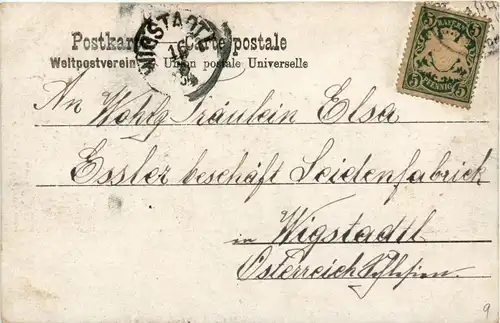 Postkarte — Carte postale
Weltpostverein — Union postale Universelle
WIGSTADTL
16
BAYERN
5 5
5 PFENNIG 5
An Wohlg. Fräulein Elsa
Essler beschäft Seidenfabrick
in Wigstadtl
Österreich Schlesien.
9